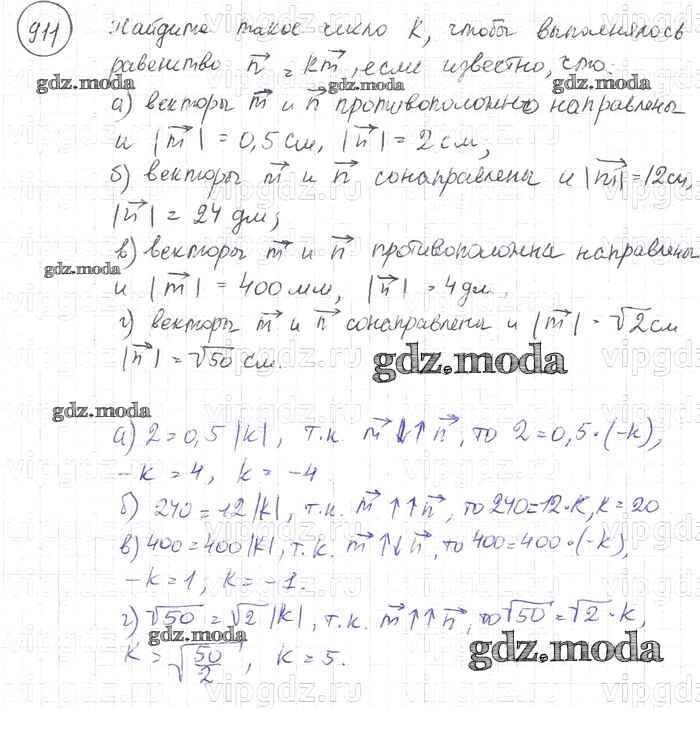 911 Найдите такое число k, чтобы выполнялось
равенство n⃗ = km⃗, если известно, что:
gdz.moda gdz.moda
а) векторы m⃗ и n⃗ противоположно направлены
и |m⃗| = 0,5 см, |n⃗| = 2 см;
б) векторы m⃗ и n⃗ сонаправлены и |m⃗| = 12 см,
|n⃗| = 24 дм;
в) векторы m⃗ и n⃗ противоположна направлены
gdz.moda
и |m⃗| = 400 мм, |n⃗| = 4 дм.
г) векторы m⃗ и n⃗ сонаправлены и |m⃗| = √2 см
|n⃗| = √50 см.
gdz.moda
gdz.moda
а) 2 = 0,5 |k|, т.к. m⃗ ↓↑ n⃗, то 2 = 0,5·(-k),
-k = 4, k = -4
б) 240 = 12 |k|, т.к. m⃗ ↑↑ n⃗, то 240 = 12·k, k = 20
в) 400 = 400 |k|, т.к. m⃗ ↑↓ n⃗, то 400 = 400·(-k),
-k = 1, k = -1.
г) √50 = √2 |k|, т.к. m⃗ ↑↑ n⃗, то √50 = √2·k,
gdz.moda
k = √(50/2), k = 5.
gdz.moda
vipgdz.com